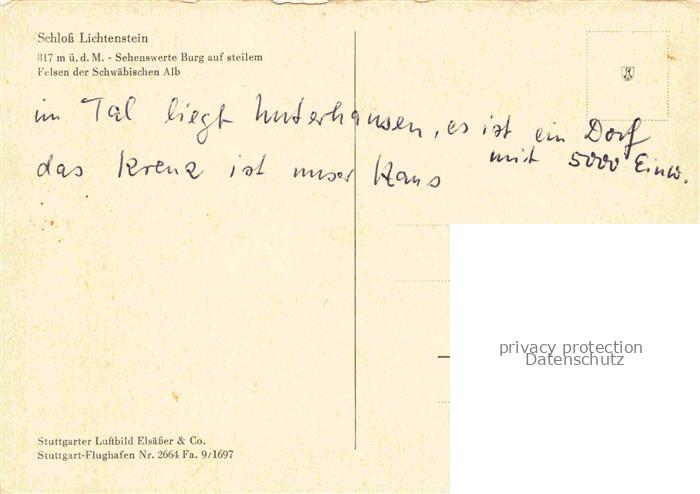 Schloß Lichtenstein
817 m ü. d. M. - Sehenswerte Burg auf steilem
Felsen der Schwäbischen Alb
im Tal liegt Unterhausen, es ist ein Dorf
mit 5000 Einw.
das Kreuz ist unser Haus
privacy protection
Datenschutz
Stuttgarter Luftbild Elsäßer & Co.
Stuttgart-Flughafen Nr. 2664 Fa. 9/1697